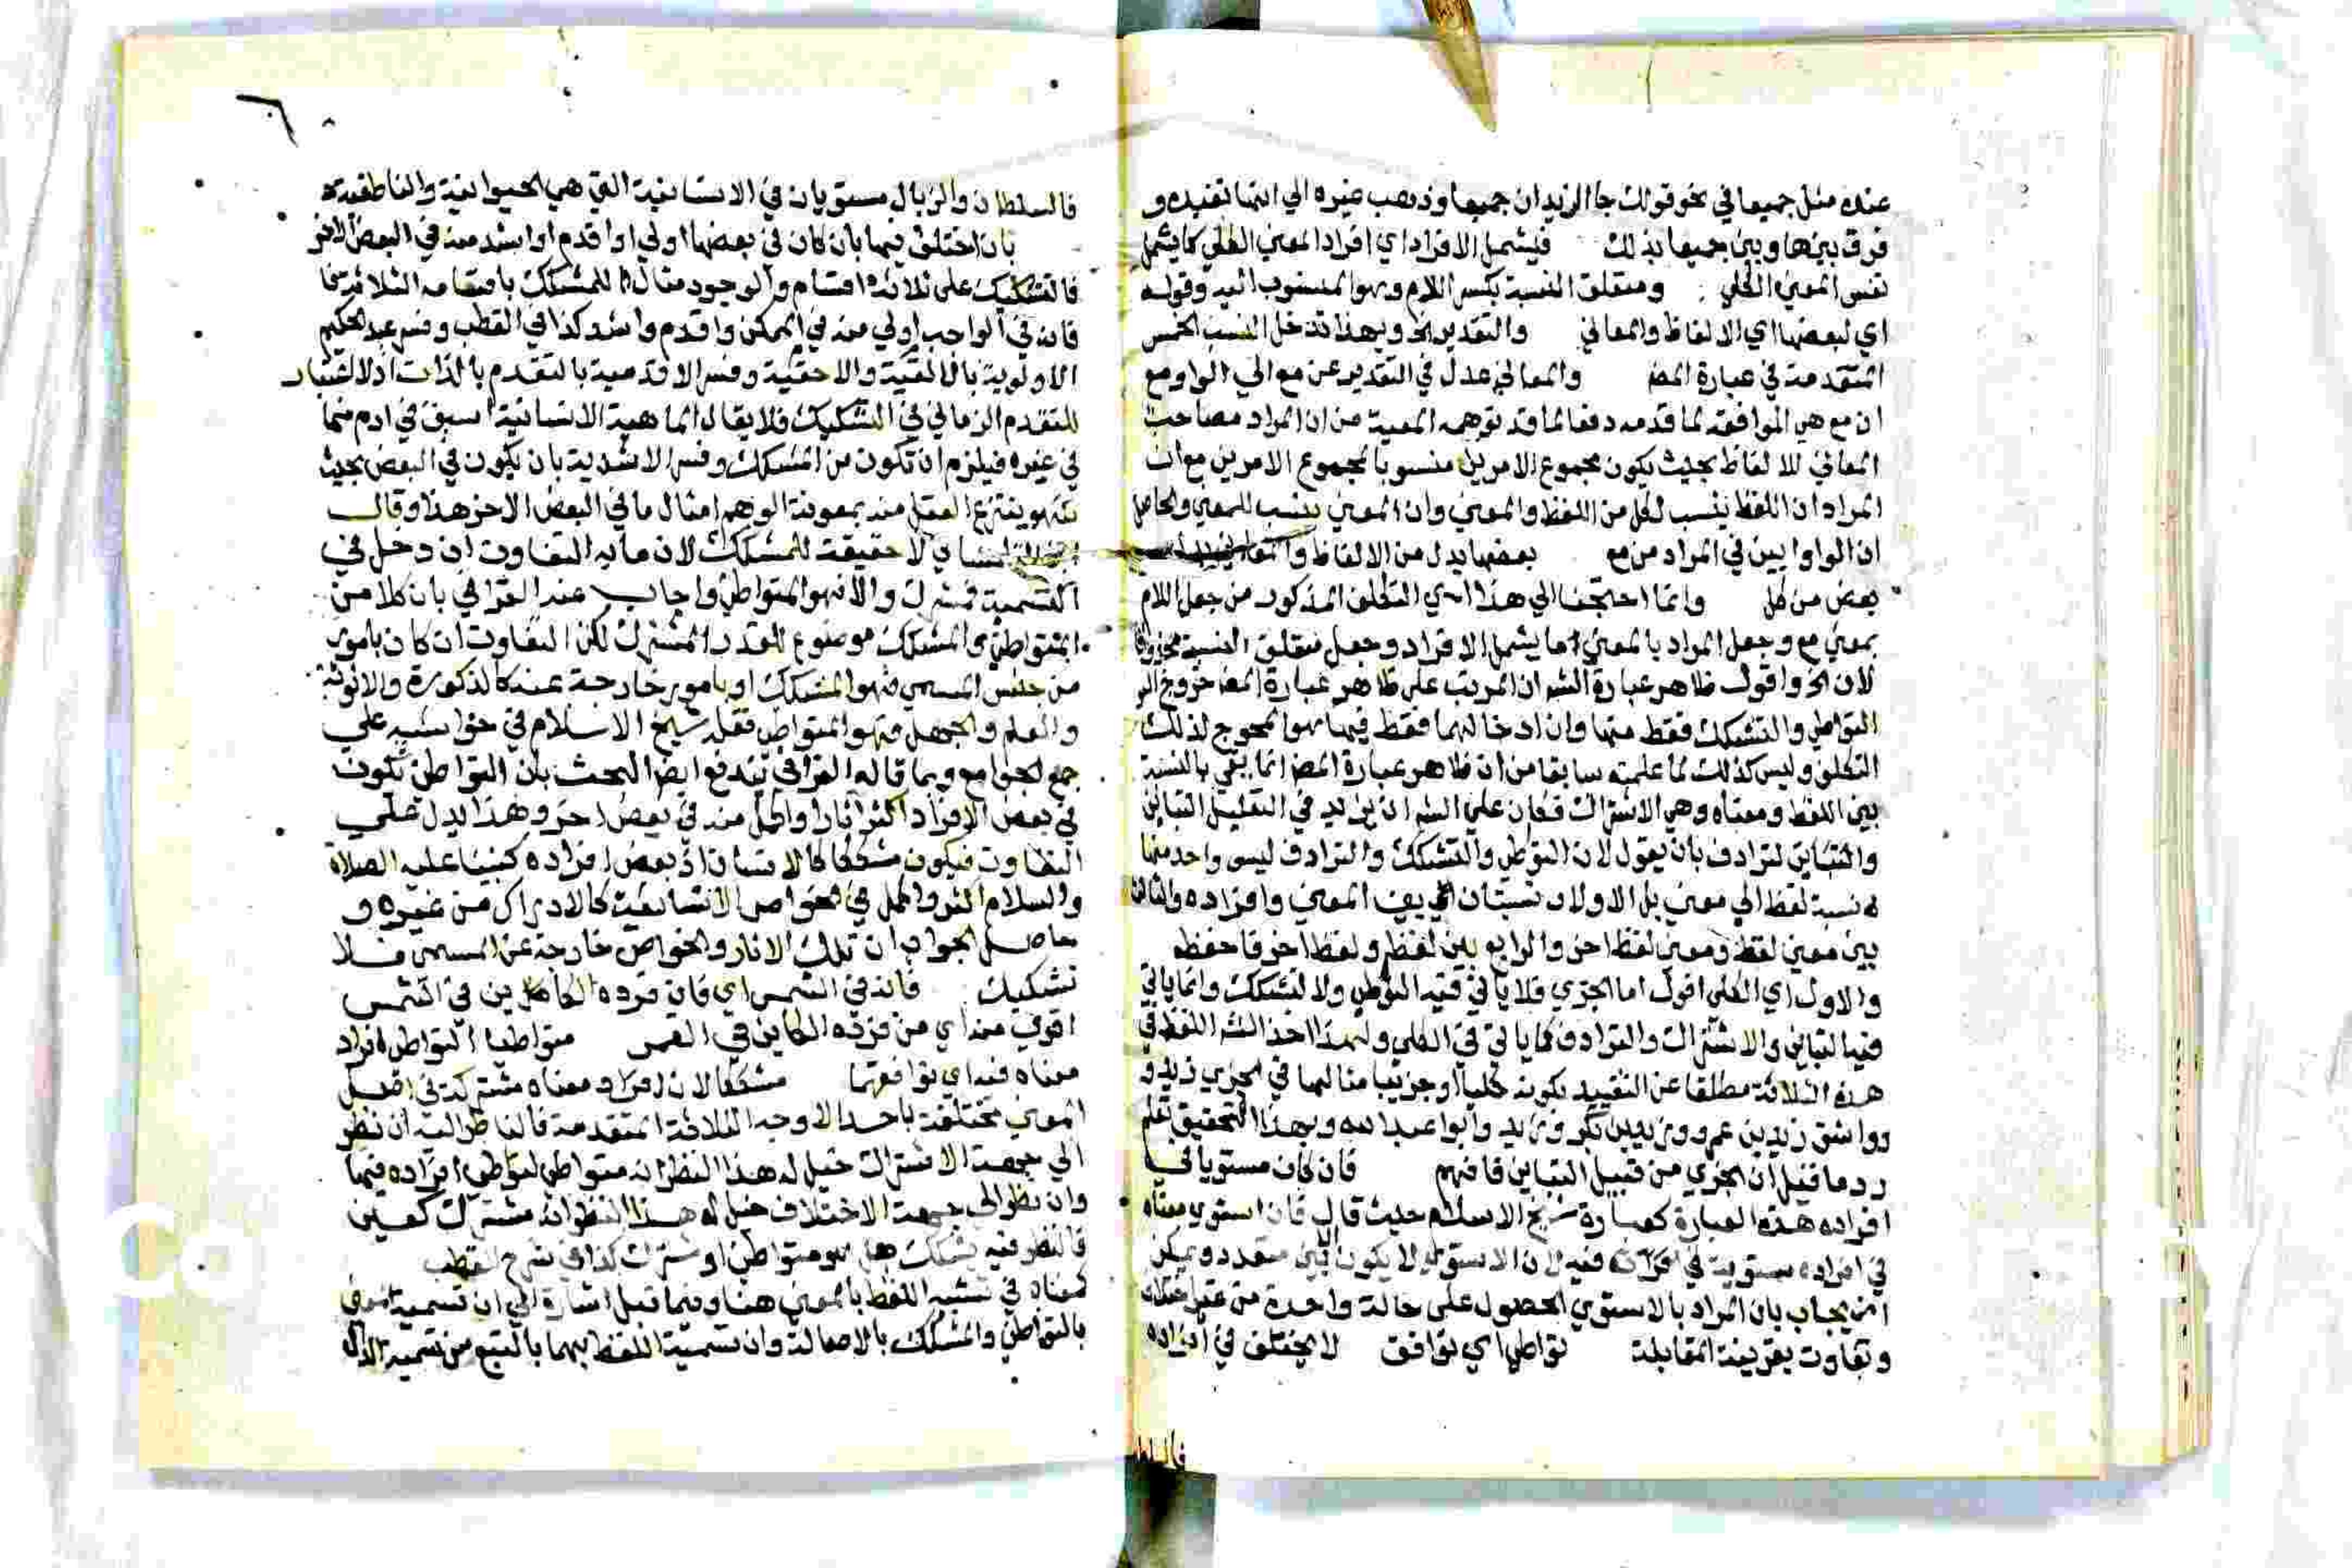 عنده مثل جميعا في نحو قولك جا الزيدان جميعا وذهب غيره الي انها تفيده و
فرق بينها وبين جميعا بذلك فيشمل الافراد اي افراد المعني الكلي كما يشمل
نفس المعني الكلي ومتعلق النسبة بكسر اللام وهو المنسوب اليه وقوله
اي لبعضها اي الالفاظ والمعاني والتقدير الخ وبهذا تدخل النسب الخمس
المتقدمة في عبارة المص والمعاني عدل في التقدير عن مع الي الواو مع
ان مع هي الموافقة لما قدمه دفعا لما قد توهمه المعية من ان المراد مصاحبة
المعاني للالفاظ بحيث يكون مجموع الامرين منسوبا لمجموع الامرين مع ان
المراد ان اللفظ ينسب لكل من اللفظ والمعني وان المعني ينسب للمعني والحاصل
ان الواو ابين في المراد من مع بعضها بدل من الالفاظ والمعاني
بعض من كل وانما احتجنا الي هذا اي التكلف المذكور من جعل اللام
بمعني مع وجعل المراد بالمعني ما يشمل الافراد وجعل متعلق النسبة محذوفا
لان الخ واقول ظاهر عبارة الشه ان المرتب علي ظاهر عبارة المص خروج
التواطي والتشكك فقط منها وان ادخالهما فقط فيها هو المحوج لذلك
التكلف وليس كذلك لما علمته سابقا من ان ظاهر عبارة المص انما يفي بالنسبة
بين اللفظ ومعناه وهي الاشتراك فكان علي الشه ان يزيد في التعليل التباين
والتباين لترادف بان يقول لان التوطي والتشكك والترادف ليس واحد منها
نسبة لفظ الي معني بل الاولان نسبتان بين المعني وافراده والثالث
بين معني لفظ ومعني لفظ اخر والرابع بين لفظ ولفظ اخر فاحفظه
والاول اي الكلي اقول اما الجزي فلا ياتي فيه التوطي ولا لتشكك وانما ياتي
فيه التباين والاشتراك والترادف كما ياتي في الكلي ولهذا اخذ الشه اللفظ في
هذه الثلاثة مطلقا عن التقييد بكونه كليا او جزييا مثالها في الجزي زيد و
وواشق زيد بن عمرو وزيد بن بكر وزيد وابو عبد الله وبهذا التحقيق تعلم
رد ما قيل ان الجزي من قبيل التباين فافهم فان كان مستويا في
افراده هذه العبارة كعبارة شيخ الاسلام حيث قال فان استوي معناه
في افراده مستوية في افراده فيه ان الاستوي لا يكون الا بين متعدد ويمكن
ان يجاب بان المراد بالاستوي الحصول علي حالة واحدة من غير اختلاف
وتفاوت بقرينة المقابلة تواطي اي توافق لا يختلف في افراده
فالسلطان
٦
فالسلطان والزبال مستويان في الانسانية التي هي الحيوانية والناطقية
بان اختلف فيها بان كان في بعضها اولي او اقدم او اشد منه في البعض الاخر
فالتشكيك علي ثلاثة اقسام والوجود مثال للمشكك باقسامه الثلاثة
فانه في الواجب اولي منه في الممكن واقدم واشد كذا في القطب وفسر عبد الحكيم
الاولوية بالاليقية والاحقية وفسر الاقدمية بالتقدم بالذات اذ لا اعتبار
للتقدم الزماني في التشكيك فلا يقال الماهية الانسانية اسبق في ادم منها
في غيره فيلزم ان تكون من المشكك وفسر الاشدية بان يكون في البعض بحيث
ينتزع العقل منه بمعونة الوهم امثال ما في البعض الاخر هذا وقال
ابن التلمساني لا حقيقة للمشكك لان ما به التفاوت ان دخل في
التسمية فمشترك والا فهو المتواطي واجاب عنه القرافي بان كلا من
المتواطي والمشكك موضوع للقدر المشترك لكن التفاوت ان كان بامور
من جنس المسمي فهو المشكك او بامور خارجة عنه كالذكورة والانوثة
والعلم والجهل فهو المتواطي نقله شيخ الاسلام في حواشيه علي
جمع الجوامع وبما قاله القرافي يندفع ايضا البحث بان التواطي تكون
في بعض الافراد اكثر اثارا واكمل منه في بعض اخر وهذا يدل علي
التفاوت فيكون مشككا كالانسان اذ بعض افراده كنبينا عليه الصلاة
والسلام اكثر واكمل في الخواص الانسانية كالادراك من غيره و
حاصل الجواب ان تلك الاثار والخواص خارجة عن المسمي فلا
تشكيك فانه في الشمس اي فان فرده الكاين في الشمس
اقوي منه اي من فرده الكاين في القمر متواطيا لتواطي افراد
معناه فيه اي توافقها مشككا لان افراد معناه مشتركة في اصل
المعني مختلفة باحد الاوجه الثلاثة المتقدمة فالناظر اليه ان نظر
الي جهة الاشتراك خيل له هذا النظر انه متواطي لتواطي افراده فيها
وان نظر الي جهة الاختلاف خيل له هذا النظر انه مشترك كعين
فالناظر فيه يشكك هل هو متواطي او مشترك كذا في شرح القطب
معناه في تشبيه اللفظ بالمعني هنا وفيما قبل اشارة الي ان تسمية المعني
بالتواطي والمشكك بالاصالة وان تسمية اللفظ بهما بالتبع من تسمية الدال